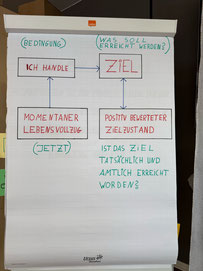 (BEDINGUNG)
(WAS SOLL
ERREICHT WERDEN?)
ICH HANDLE
ZIEL
MOMENTANER
LEBENSVOLLZUG
POSITIV BEWERTETER
ZIELZUSTAND
(JETZT)
IST DAS ZIEL
TATSÄCHLICH UND
AMTLICH ERREICHT
WORDEN?